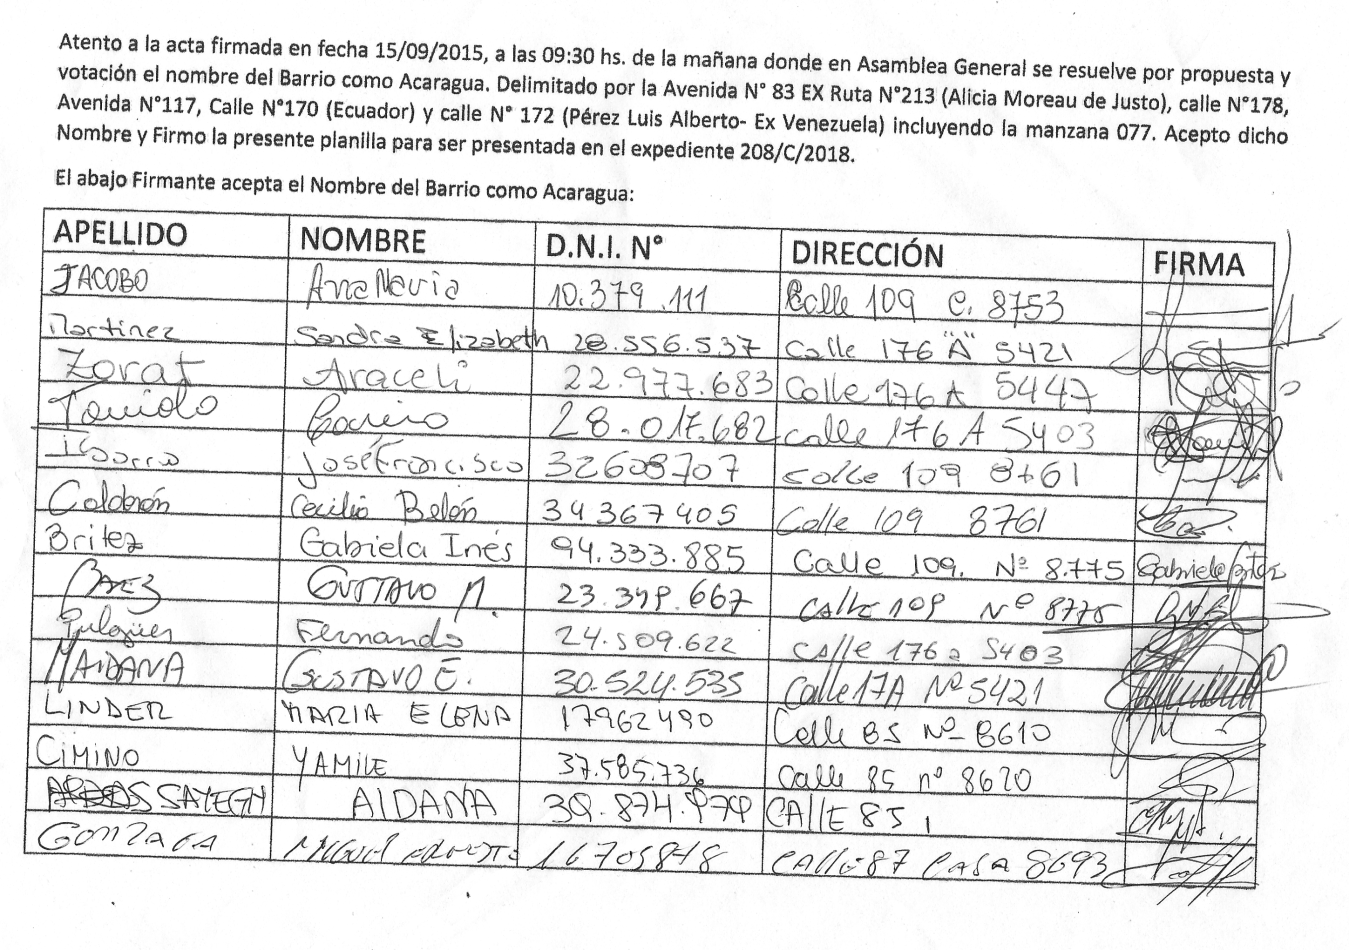 Atento a la acta firmada en fecha 15/09/2015, a las 09:30 hs. de la mañana donde en Asamblea General se resuelve por propuesta y
votación el nombre del Barrio como Acaragua. Delimitado por la Avenida N° 83 EX Ruta N°213 (Alicia Moreau de Justo), calle N°178,
Avenida N°117, Calle N°170 (Ecuador) y calle N° 172 (Pérez Luis Alberto- Ex Venezuela) incluyendo la manzana 077. Acepto dicho
Nombre y Firmo la presente planilla para ser presentada en el expediente 208/C/2018.
El abajo Firmante acepta el Nombre del Barrio como Acaragua:
APELLIDO NOMBRE D.N.I. N° DIRECCIÓN FIRMA
JACOBO Ana Maria 10.379.111 Calle 109 C. 8753
Martinez Sandra Elizabeth 28.556.537 Calle 176 "A" 5421
Zorat Araceli 22.977.683 Calle 176 A 5447
28.017.682 calle 176 A 5403
José Francisco 32608707 calle 109
Calderón Cecilia Belén 34367405 Calle 109 8761
Britez Gabriela Inés 94.333.885 Calle 109. Nº 8.775 Gabriela Britez
BAEZ GUSTAVO M. 23.349.667 calle 109 Nº 8775
Fernando 24.509.622 calle 176 a 5403
MAIDANA GUSTAVO E. 30.524.535 Calle 17A Nº 5421
LINDER MARIA ELENA 17962490 Calle 85 Nº 8610
CIMINO YAMILE 37.585.736 Calle 85 nº 8620
SAYEGH AIDANA 39.874.979 CALLE 85
GONZAGA MIGUEL ERNESTO 16705878 CALLE 87 CASA 8693